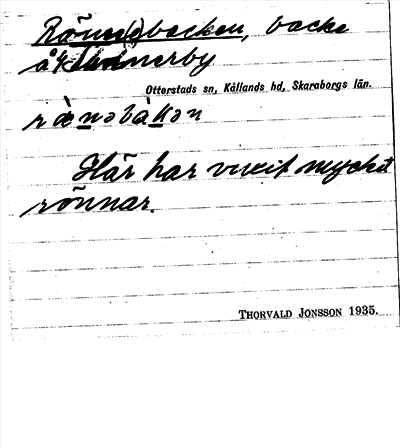 Rönne(s)backen, backe
å
Otterstads sn, Kållands hd, Skaraborgs län.
ræ̀nəbàkən
Här har vuxit mycket
rönnar.
THORVALD JONSSON 1935.